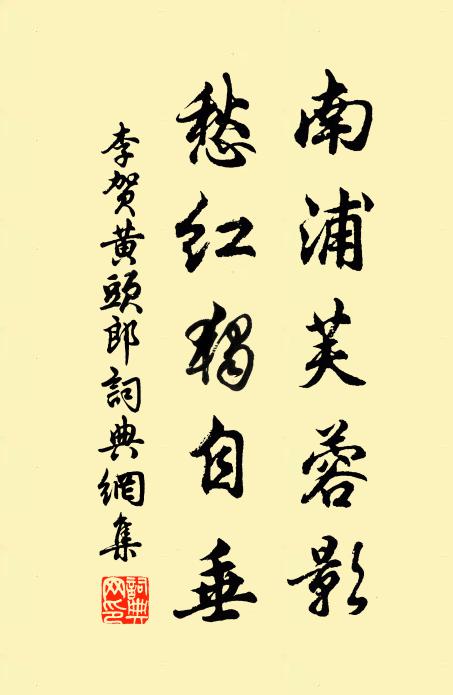 南浦芙蓉影
愁红獨自垂
李贺黄頭郎詞典網集
詞典
网印